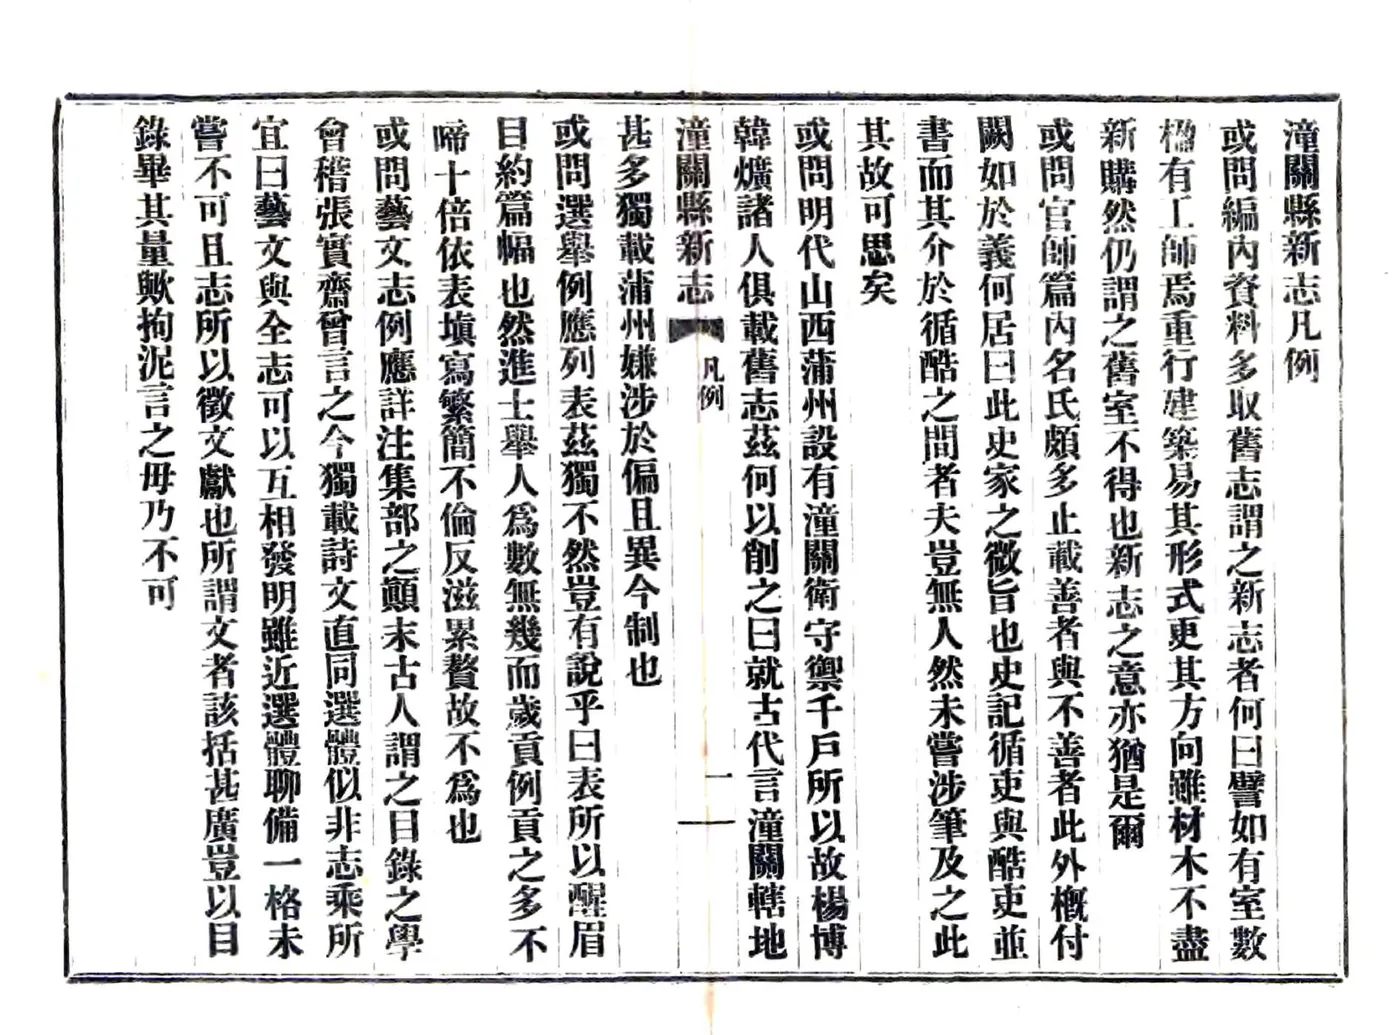 潼關縣新志凡例
或問編內資料多取舊志謂之新志者何曰譬如有室數
楹有工師焉重行建築易其形式更其方向雖材木不盡
新購然仍謂之舊室不得也新志之意亦猶是爾
或問官師篇內名氏頗多止載善者與不善者此外概付
闕如於義何居曰此史家之微旨也史記循吏與酷吏並
書而其介於循酷之間者夫豈無人然未嘗涉筆及之此
其故可思矣
或問明代山西蒲州設有潼關衛守禦千戶所以故楊博
韓爌諸人俱載舊志茲何以削之曰就古代言潼關轄地
潼關縣新志 凡例 一
甚多獨載蒲州嫌涉於偏且異今制也
或問選舉例應列表茲獨不然豈有說乎曰表所以醒眉
目約篇幅也然進士舉人爲數無幾而歲貢例貢之多不
啻十倍依表填寫繁簡不倫反滋累贅故不爲也
或問藝文志例應詳注集部之顛末古人謂之目錄之學
會稽張實齋曾言之今獨載詩文直同選體似非志乘所
宜曰藝文與全志可以互相發明雖近選體聊備一格未
嘗不可且志所以徵文獻也所謂文者該括甚廣豈以目
錄畢其量歟拘泥言之毋乃不可